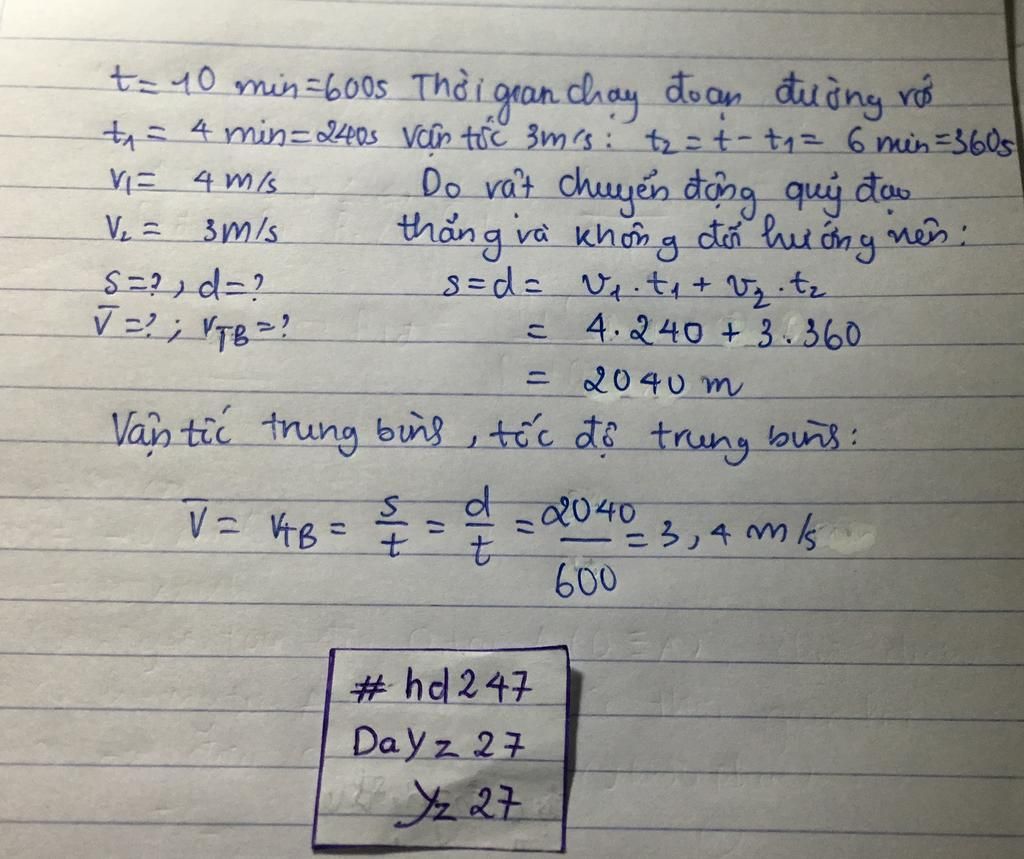 t = 10 min = 600s Thời gian chạy đoạn đường với
t₁ = 4 min = 240s vận tốc 3m/s: t₂ = t - t₁ = 6 min = 360s
v₁ = 4 m/s Do vật chuyển động quỹ đạo
v₂ = 3m/s thẳng và không đổi hướng nên:
s = ?, d = ? s = d = v₁.t₁ + v₂.t₂
v̅ = ?; v_TB = ? = 4.240 + 3.360
= 2040 m
Vận tốc trung bình, tốc độ trung bình:
v̅ = v_TB = s/t = d/t = 2040/600 = 3,4 m/s
# hd247
DaYz 27
Yz 27